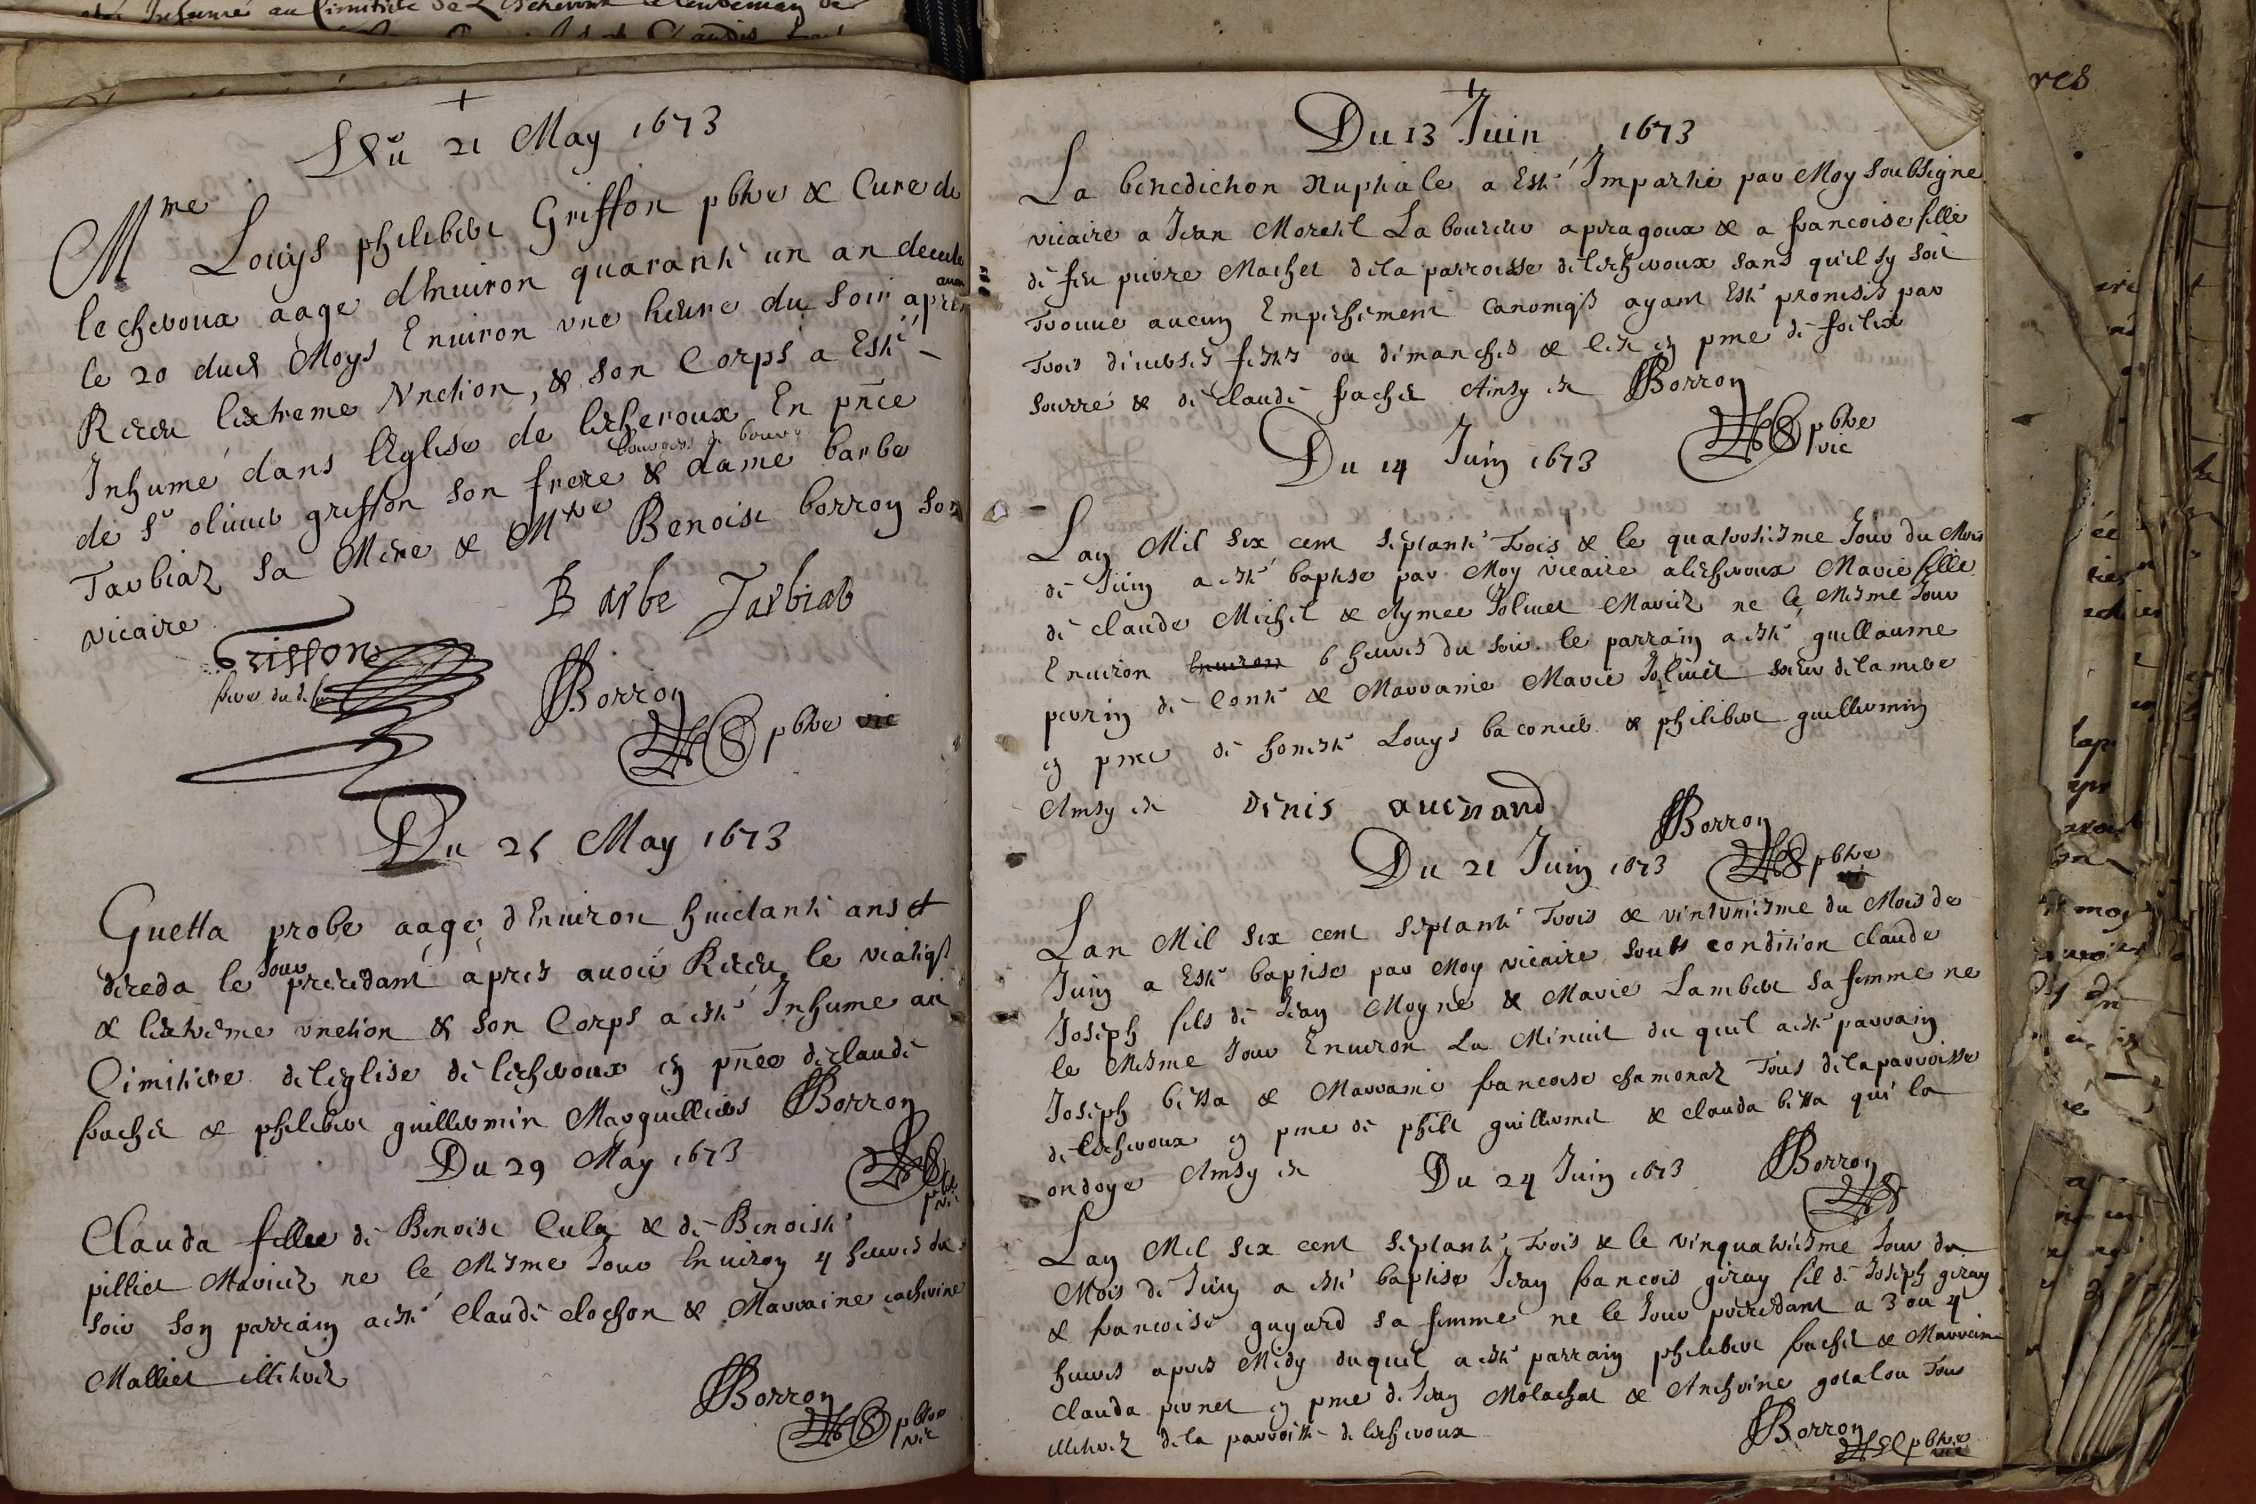 +
Du 21 May 1673
Mre Louys philibert Griffon pbtre & Cure de
lecheroux aage d'Enuiron quarante un an deceda
le 20 dud Moys Enuiron vne heure du soir apres
auoir
Receu lextreme Vnction, & son Corps a Esté
Inhumé dans l'Eglise de lecheroux En pñce
de Sr oliuier griffon son frere & dame barbe
bourgeois de bourg
Tarbiaz sa Mere & Mre Benoist borron son
vicaire
Barbe Tarbiat
Griffon
frere du
Borron
pbtre vic
Du 25 May 1673
Guetta probe aage d'Enuiron huictante ans &
deceda le Jour precedant apres auoir Receu le viatiq
& lextreme vnction & son Corps a esté Inhume au
Cimitiere de leglise de lecheroux en pñce de claude
frachet & philibert guillermin Marguilliers Borron
pbtre vic
Du 29 May 1673
Clauda fillee de Benoist Cula & de Benoiste
pilliet Mariez ne le Mesme Jour Enuiron 4 heures du
soir son parrain a esté Claude clochon & Marraine
Malliet illetrez
Borron
pbtre vic
+
Du 13 Juin 1673
La benediction Nuptiale a Esté Impartie par Moy soubsigne
vicaire a Jean Morelit Laboureur a peragoux & a francoise fille
de feu pierre Machet de la parroisse de lecheroux sans qu'il sy soit
trouue aucun Empechement Canoniq ayant Esté promeses par
trois diuerses festes ou dimanches & le en pnce de foelix
Sourre & de Claude frachet Ainsy est Borron
pbtre vic
Du 14 Juin 1673
Lan Mil six cent septante trois & le quatorziesme Jour du Mois
de Juin a esté baptise par Moy vicaire a lecheroux Marie fille
de claude Michel & Aymee Joliuet Mariez ne le Mesme Jour
Enuiron Enuiron 6 heures du soir. le parrain a esté guillaume
perrin de Conte & Marraine Marie Joliuet soeur de la mere
en pnce de honeste Louys baconier & philibert guillermin
Ainsy est Denis auenand
Borron
pbtre
Du 21 Juin 1673
Lan Mil six cent septante trois & vintuniesme du Mois de
Juin a Esté baptise par Moy vicaire soubs condition claude
Joseph fils de Jean Moyne & Marie Lambert sa femme ne
le Mesme Jour Enuiron La Minuit du quel a esté parrain
Joseph bessa & Marraine francoise chamonaz Tous de la parroisse
de lecheroux en pnce de philit guillermet & clauda bessa qui la
ondoye Ainsy est
Borron
Du 24 Juin 1673
Lan Mil six cent septante trois & le vinquatriesme Jour du
Mois de Juin a esté baptise Jean francois giray fil de Joseph giray
& francoise guyard sa femme ne le Jour precedant a 3 ou 4
heures apres Midy duquel a esté parrain philibert frachet & Marraine
clauda peruet en pnce de Jean Molachat & Anthoine golalou Tous
illetrez de la parroisse de lecheroux
Borron
pbtre vic